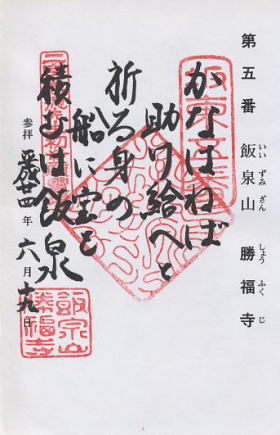 第五番 飯泉山 勝福寺
いいずみざん しょうふくじ
かなはねば
助け給へと
祈る身の
船に宝を
積むは飯泉
参拝 平成廿四年 六月 日
飯泉山
勝福寺